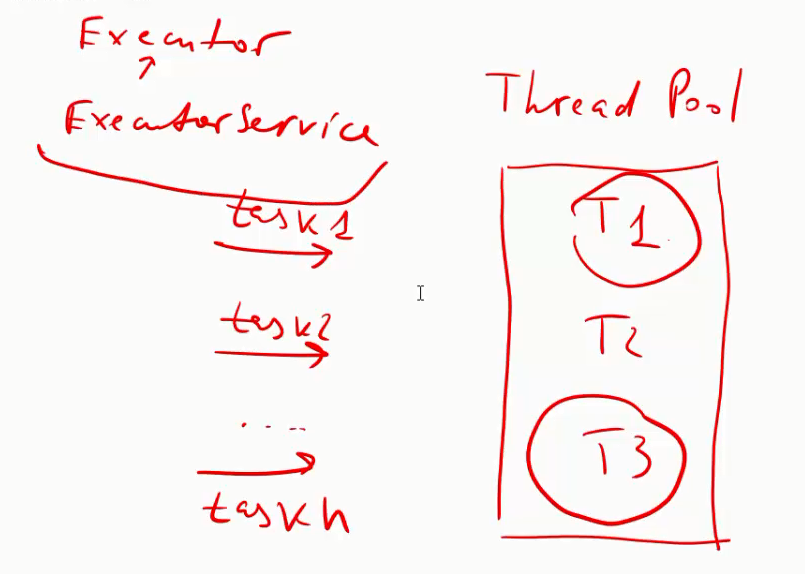 Executor
ExecutorService
task1
task2
....
task n
Thread Pool
T1
T2
T3